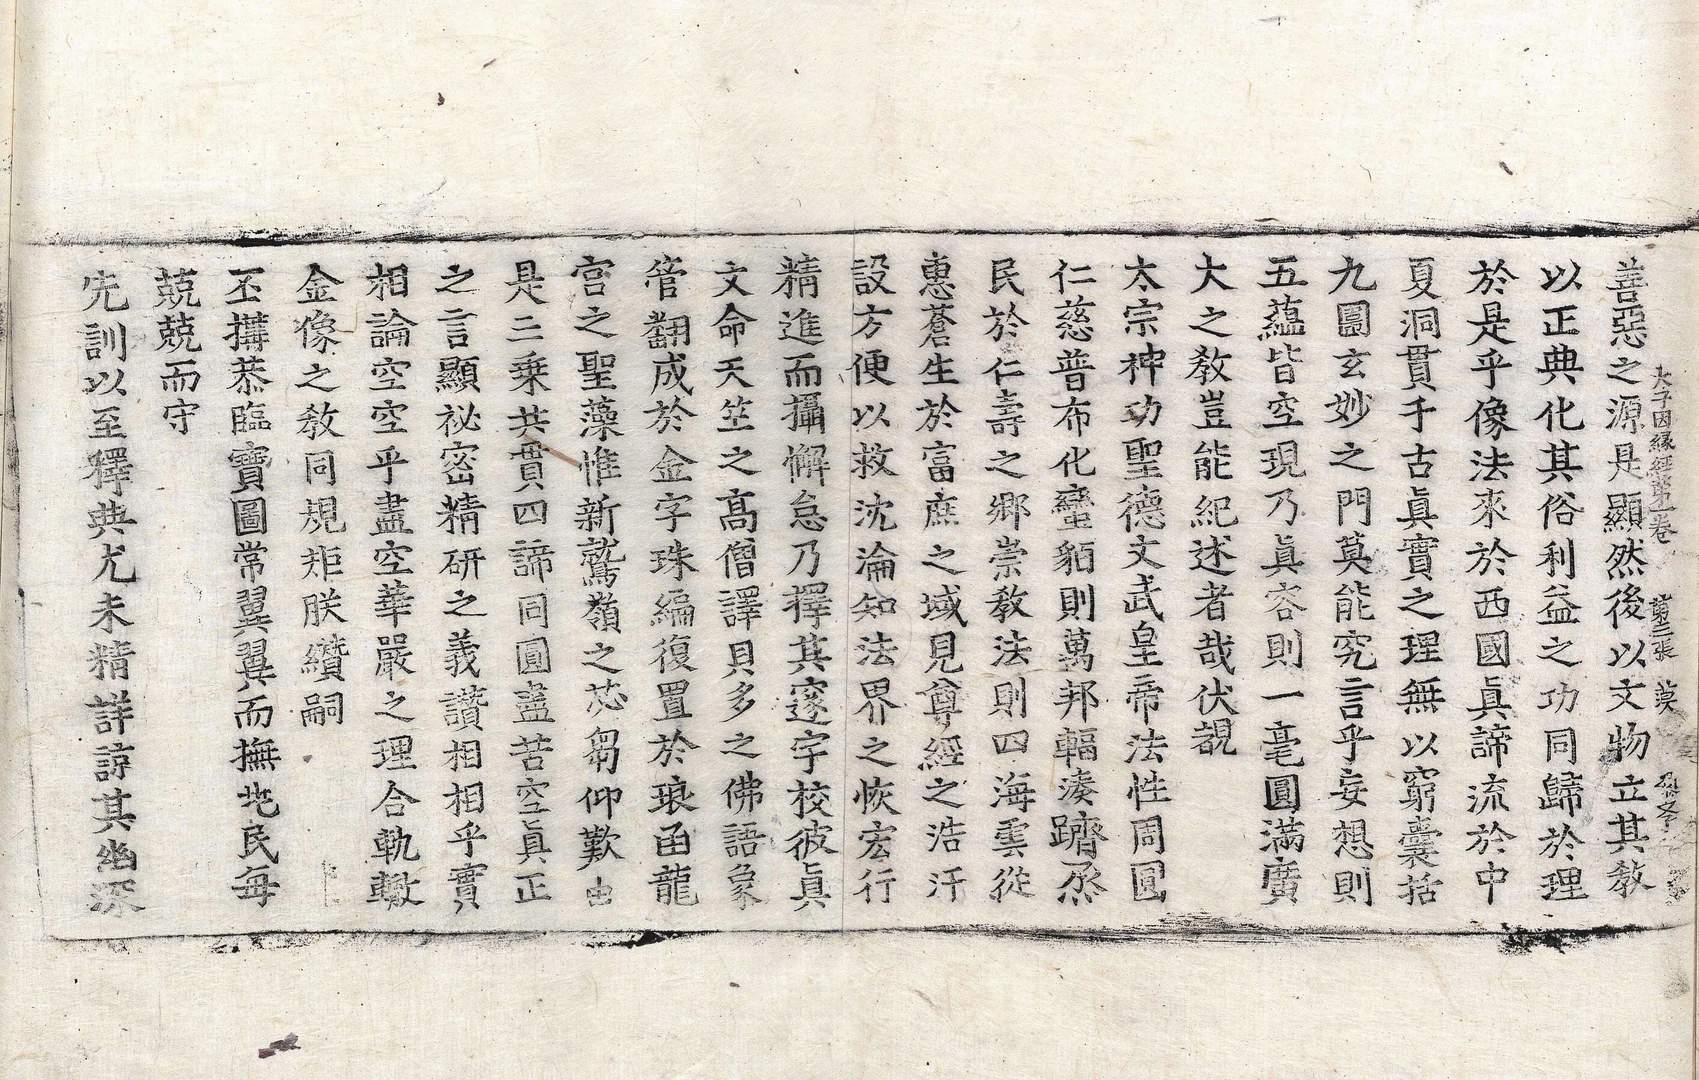 太子因緣經第一卷　第二張　莫
善惡之源是顯然後以文物立其教
以正典化其俗利益之功同歸於理
於是乎像法來於西國眞諦流於中
夏洞貫千古眞實之理無以窮囊括
九圍玄妙之門莫能究言乎妄想則
五蘊皆空現乃眞容則一毫圓滿廣
大之教豈能紀述者哉伏覩
太宗神功聖德文武皇帝法性周圓
仁慈普布化蠻貊則萬邦輻湊躋烝
民於仁壽之鄉崇教法則四海雲從
惠蒼生於富庶之域見尊經之浩汗
設方便以救沈淪知法界之恢宏行
精進而攝懈怠乃擇其邃宇校彼眞
文命天竺之高僧譯貝多之佛語象
管翻成於金字珠編復置於琅函龍
宮之聖藻惟新鷲嶺之苾芻仰歎由
是二乘共貫四諦同圓盡苦空眞正
之言顯祕密精研之義讚相相乎實
相論空空乎盡空華嚴之理合軌轍
金像之教同規矩朕纘嗣
丕搆恭臨寶圖常翼翼而撫兆民每
兢兢而守
先訓以至釋典尤未精詳諒其幽深